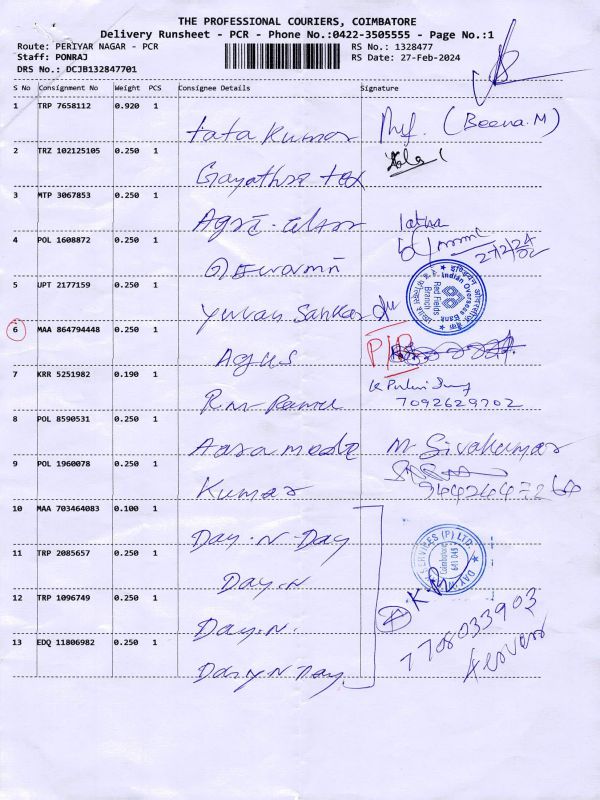 THE PROFESSIONAL COURIERS, COIMBATORE
Delivery Runsheet - PCR - Phone No.:0422-3505555 - Page No.:1
Route: PERIYAR NAGAR - PCR RS No.: 1328477
Staff: PONRAJ RS Date: 27-Feb-2024
DRS No.: DCJB132847701
S No Consignment No Weight PCS Consignee Details Signature
1 TRP 7658112 0.920 1
tata kumar (Beena.M)
2 TRZ 102125105 0.250 1
Gayathri tax
3 MTP 3067853 0.250 1
4 POL 1608872 0.250 1
27/2/24
5 UPT 2177159 0.250 1
Indian Overseas Bank
Red Fields
Branch
Yuvan Sankar
6 MAA 864794448 0.250 1
Agus
7 KRR 5251982 0.190 1
7092629702
8 POL 8590531 0.250 1
M. Sivakumar
9 POL 1960078 0.250 1
Kumar
10 MAA 703464083 0.100 1
Day-N-Day
SERVICES (P) LTD.
11 TRP 2085657 0.250 1
Day-N
12 TRP 1096749 0.250 1
Day-N.
13 EDQ 11806982 0.250 1
Day N Day